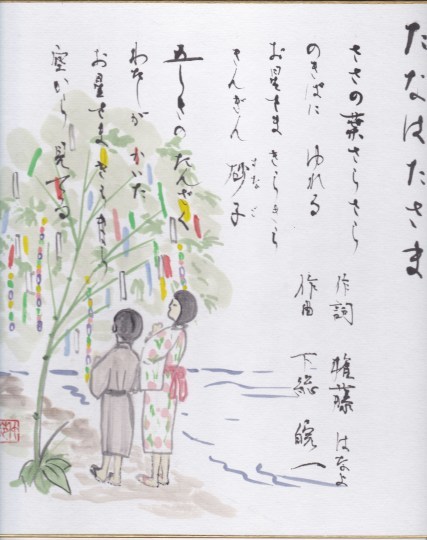 たなばたさま
ささの葉さらさら
のきばに ゆれる
お星さま きらきら
きんぎん 砂子
すなご
五しきの たんざく
わたしが かいた
お星さま きらきら
空から 見てる
作詞 権藤 はなよ
作曲 下総 皖一